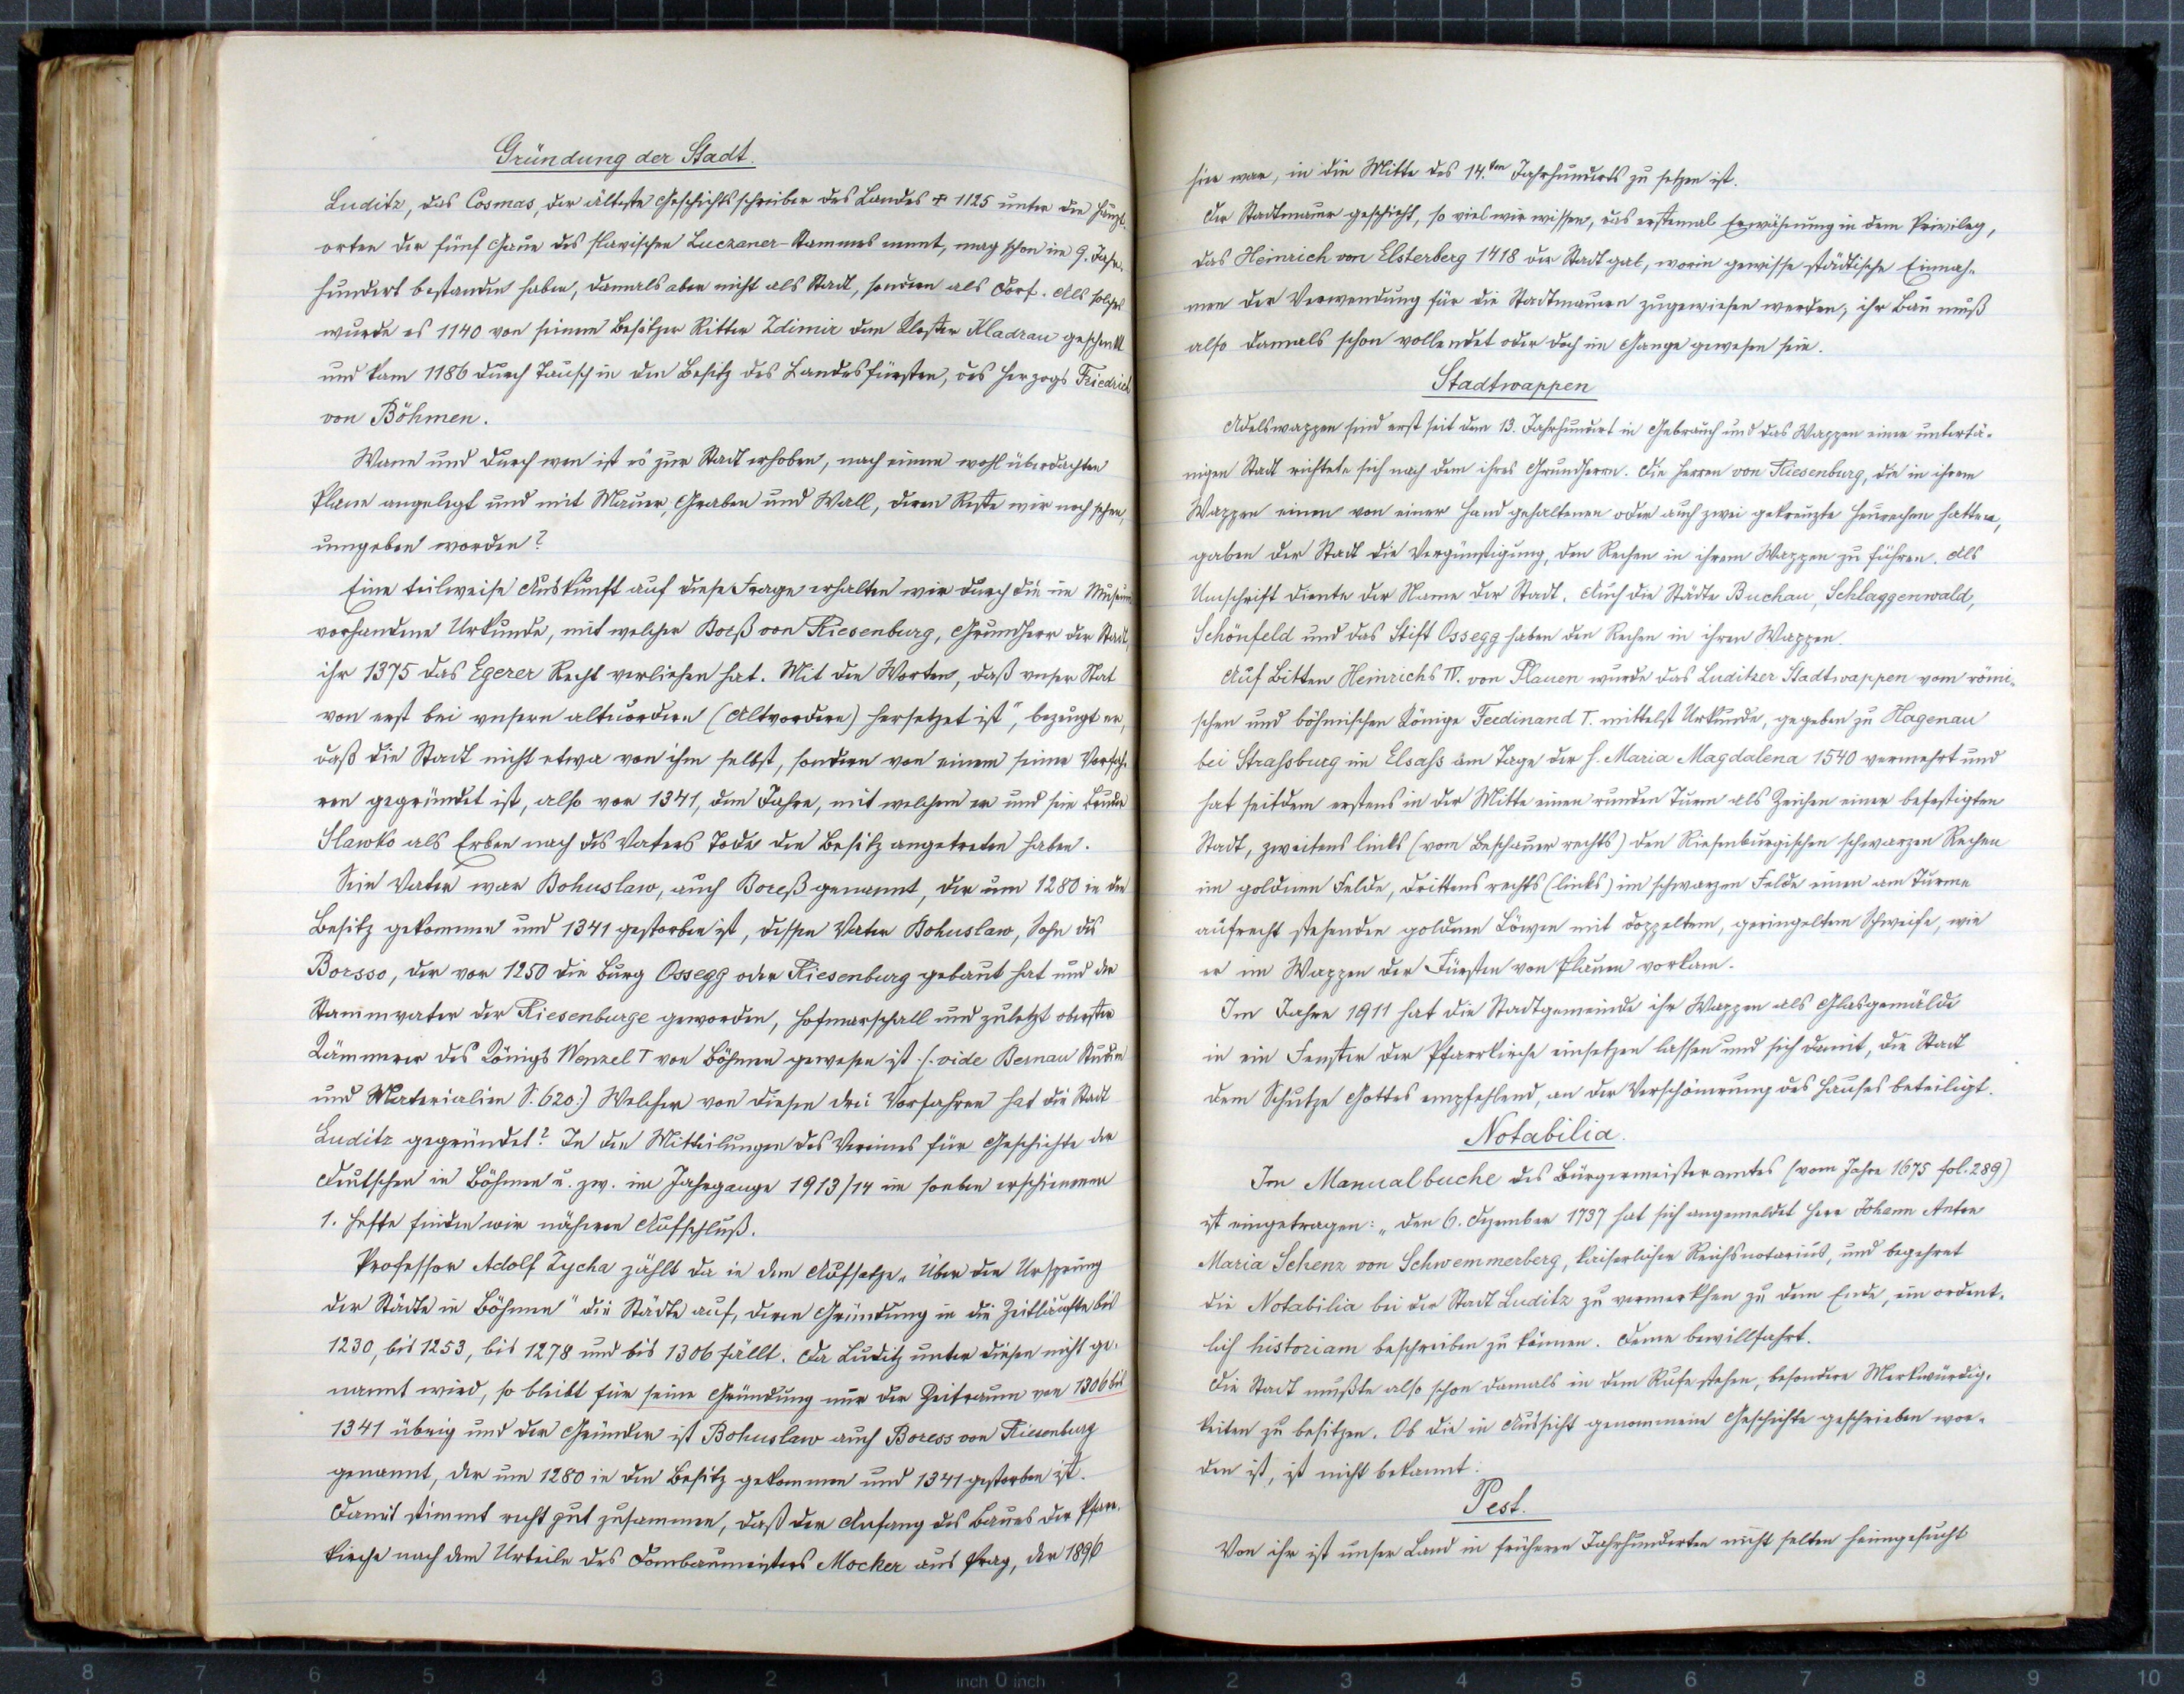 Gründung der Stadt.
Luditz, das Cosmas, der älteste Geschichtsschreiber des Landes + 1125 unter die Haupt-
orten der fünf Gaue des slavischen Luczaner-Stammes nennt, mag schon im 9. Jahr-
hundert bestanden haben, damals aber nicht als Stadt, sondern als Dorf. Als solches
wurde es 1140 von seinem Besitzer Ritter Zdimir dem Kloster Kladrau geschenkt
und kam 1186 durch Tausch in den Besitz des Landesfürsten, des Herzogs Friedrich
von Böhmen.
Wann und durch wen ist es zur Stadt erhoben, nach einem wohl überdachten
Plane angelegt und mit Mauer, Graben und Wall, deren Reste wir noch sehen,
umgeben worden?
Eine teilweise Auskunft auf diese Frage erhalten wir durch die im Museum
vorhandene Urkunde, mit welcher Borß von Riesenburg, Grundherr der Stadt,
ihr 1375 das Egerer Recht verliehen hat. Mit den Worten, daß unser Stat
von erst bei unsern altvordern (Altvordern) hersetzet ist", bezeugt er,
daß die Stadt nicht etwa von ihm selbst, sondern von einem seiner Vorfah-
ren gegründet ist, also vor 1341, dem Jahre, mit welchem er und sein Bruder
Slawko als Erben nach des Vaters Tode den Besitz angetreten haben.
Sein Vater war Bohuslaw, auch Boreß genannt, der um 1280 in den
Besitz gekommen und 1341 gestorben ist, dessen Vater Bohuslaw, Sohn des
Borsso, der vor 1250 die Burg Ossegg oder Riesenburg gebaut hat und der
Stammvater der Riesenburge geworden, Hofmarschall und zuletzt oberster
Kämmerer des Königs Wenzel I von Böhmen gewesen ist (: vide Bernau Studien
und Materialien S. 620:) Welcher von diesen drei Vorfahren hat die Stadt
Luditz gegründet? In den Mitteilungen des Vereines für Geschichte der
Deutschen in Böhmen u. zw. im Jahrgange 1913/14 im soeben erschienenen
1. Hefte finden wir näheren Aufschluß.
Professor Adolf Zycha zählt da in dem Aufsatze „Über den Ursprung
der Städte in Böhmen" die Städte auf, deren Gründung in die Zeitläufte bis
1230, bis 1253, bis 1278 und bis 1306 fällt. Da Luditz unter diesen nicht ge-
nannt wird, so bleibt für seine Gründung nur der Zeitraum von 1306 bis
1341 übrig und der Gründer ist Bohuslaw auch Boress von Riesenburg
genannt, der um 1280 in den Besitz gekommen und 1341 gestorben ist.
Damit stimmt recht gut zusammen, daß der Anfang des Baues der Pfarr-
kirche nach dem Urteile des Dombaumeisters Mocker aus Prag, der 1896
hier war, in die Mitte des 14.ten Jahrhunderts zu setzen ist.
Der Stadtmauer geschieht, so viel wir wissen, das erstemal Erwähnung in dem Privileg,
das Heinrich von Elsterberg 1418 der Stadt gab, worin gewisse städtische Einnah-
men der Verwendung für die Stadtmauern zugewiesen werden; ihr Bau muß
also damals schon vollendet oder doch im Gange gewesen sein.
Stadtwappen
Adelswappen sind erst seit dem 13. Jahrhundert in Gebrauch und das Wappen einer untertä-
nigen Stadt richtete sich nach dem ihres Grundherrn. Die Herren von Riesenburg, die in ihrem
Wappen einen von einer Hand gehaltenen oder auch zwei gekreuzte Heurechen hatten,
gaben der Stadt die Vergünstigung, den Rechen in ihrem Wappen zu führen. Als
Umschrift diente der Name der Stadt. Auch die Städte Buchau, Schlaggenwald,
Schönfeld und das Stift Ossegg haben den Rechen in ihren Wappen.
Auf Bitten Heinrichs IV. von Plauen wurde das Luditzer Stadtwappen vom römi-
schen und böhmischen Könige Ferdinand I. mittelst Urkunde, gegeben zu Hagenau
bei Strassburg im Elsass am Tage der h. Maria Magdalena 1540 vermehrt und
hat seitdem erstens in der Mitte einen runden Turm als Zeichen einer befestigten
Stadt, zweitens links (vom Beschauer rechts) den Riesenburgischen schwarzen Rechen
im goldnen Felde, drittens rechts (links) im schwarzen Felde einen am Turme
aufrecht stehenden goldnen Löwen mit doppeltem, geringeltem Schweife, wie
er im Wappen der Fürsten von Plauen vorkam.
Im Jahre 1911 hat die Stadtgemeinde ihr Wappen als Glasgemälde
in ein Fenster der Pfarrkirche einsetzen lassen und sich damit, die Stadt
dem Schutze Gottes empfehlend, an der Verschönerung des Hauses beteiligt.
Notabilia.
Im Manualbuche des Bürgermeisteramtes (vom Jahre 1675 fol. 289)
ist eingetragen: „den 6. Dezember 1737 hat sich angemeldet Herr Johann Anton
Maria Schenz von Schwemmerberg, kaiserlicher Reichsnotarius, und begehret
die Notabilia bei der Stadt Luditz zu vermerkhen zu dem Ende, ein ordent-
lich historiam beschreiben zu können. Deme bewillfahrt.
Die Stadt mußte also schon damals in dem Rufe stehen, besondere Merkwürdig-
keiten zu besitzen. Ob die in Aussicht genommene Geschichte geschrieben wor-
den ist, ist nicht bekannt.
Pest.
Von ihr ist unser Land in früheren Jahrhunderten nicht selten heimgesucht
8 7 6 5 4 3 2 1 inch 0 inch 1 2 3 4 5 6 7 8 9 10